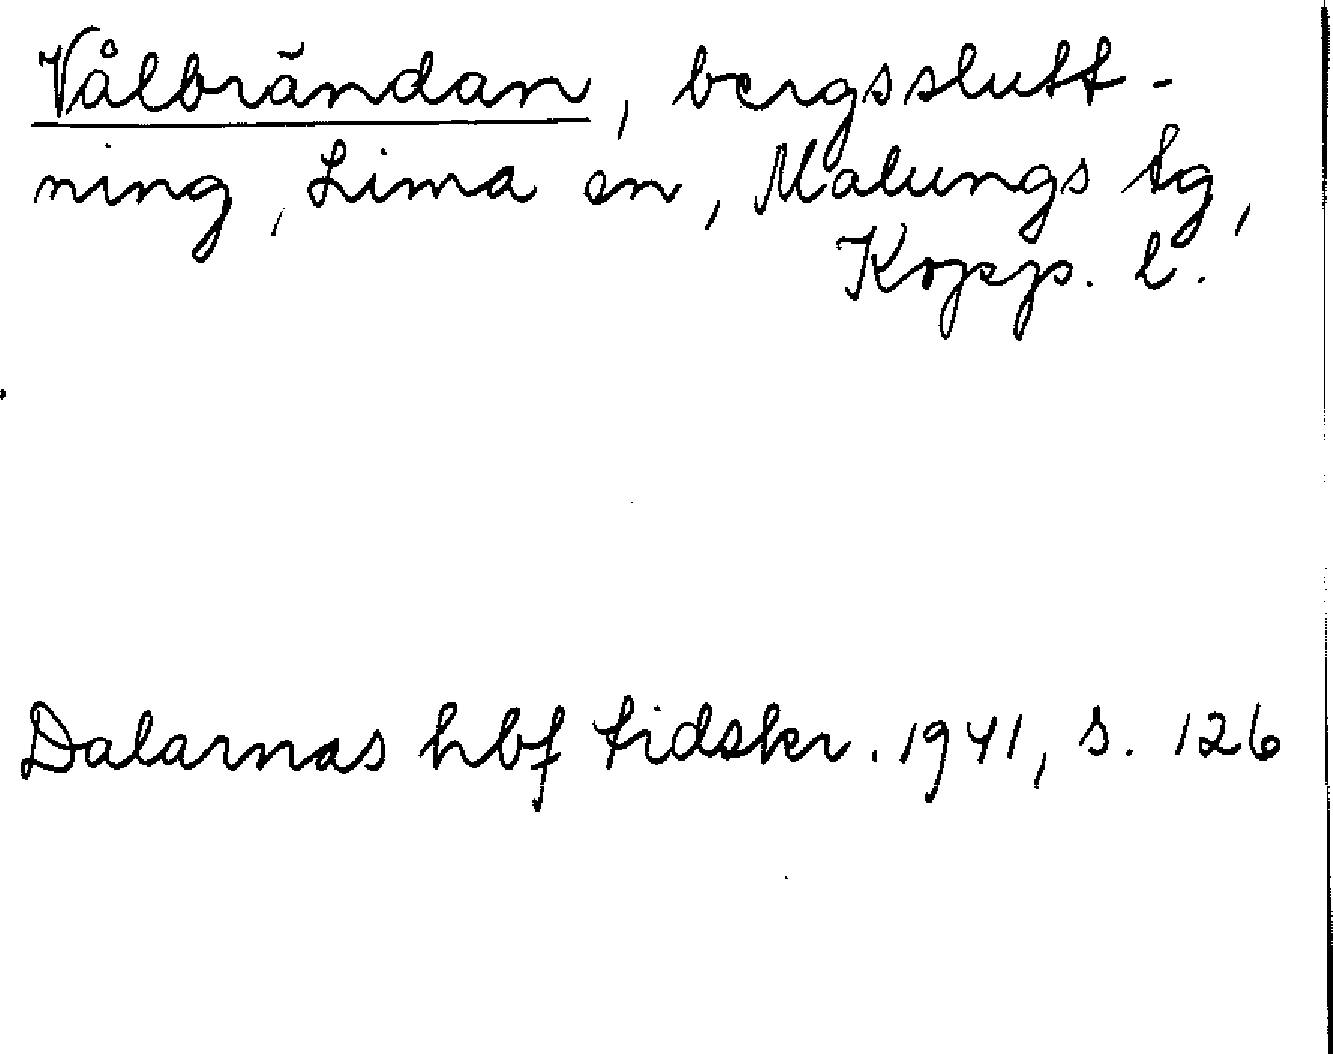 Vålbrändan, bergsslutt-
ning, Lima sn, Malungs tg,
Kopp. l.
Dalarnas hbf tidskr. 1941, s. 126